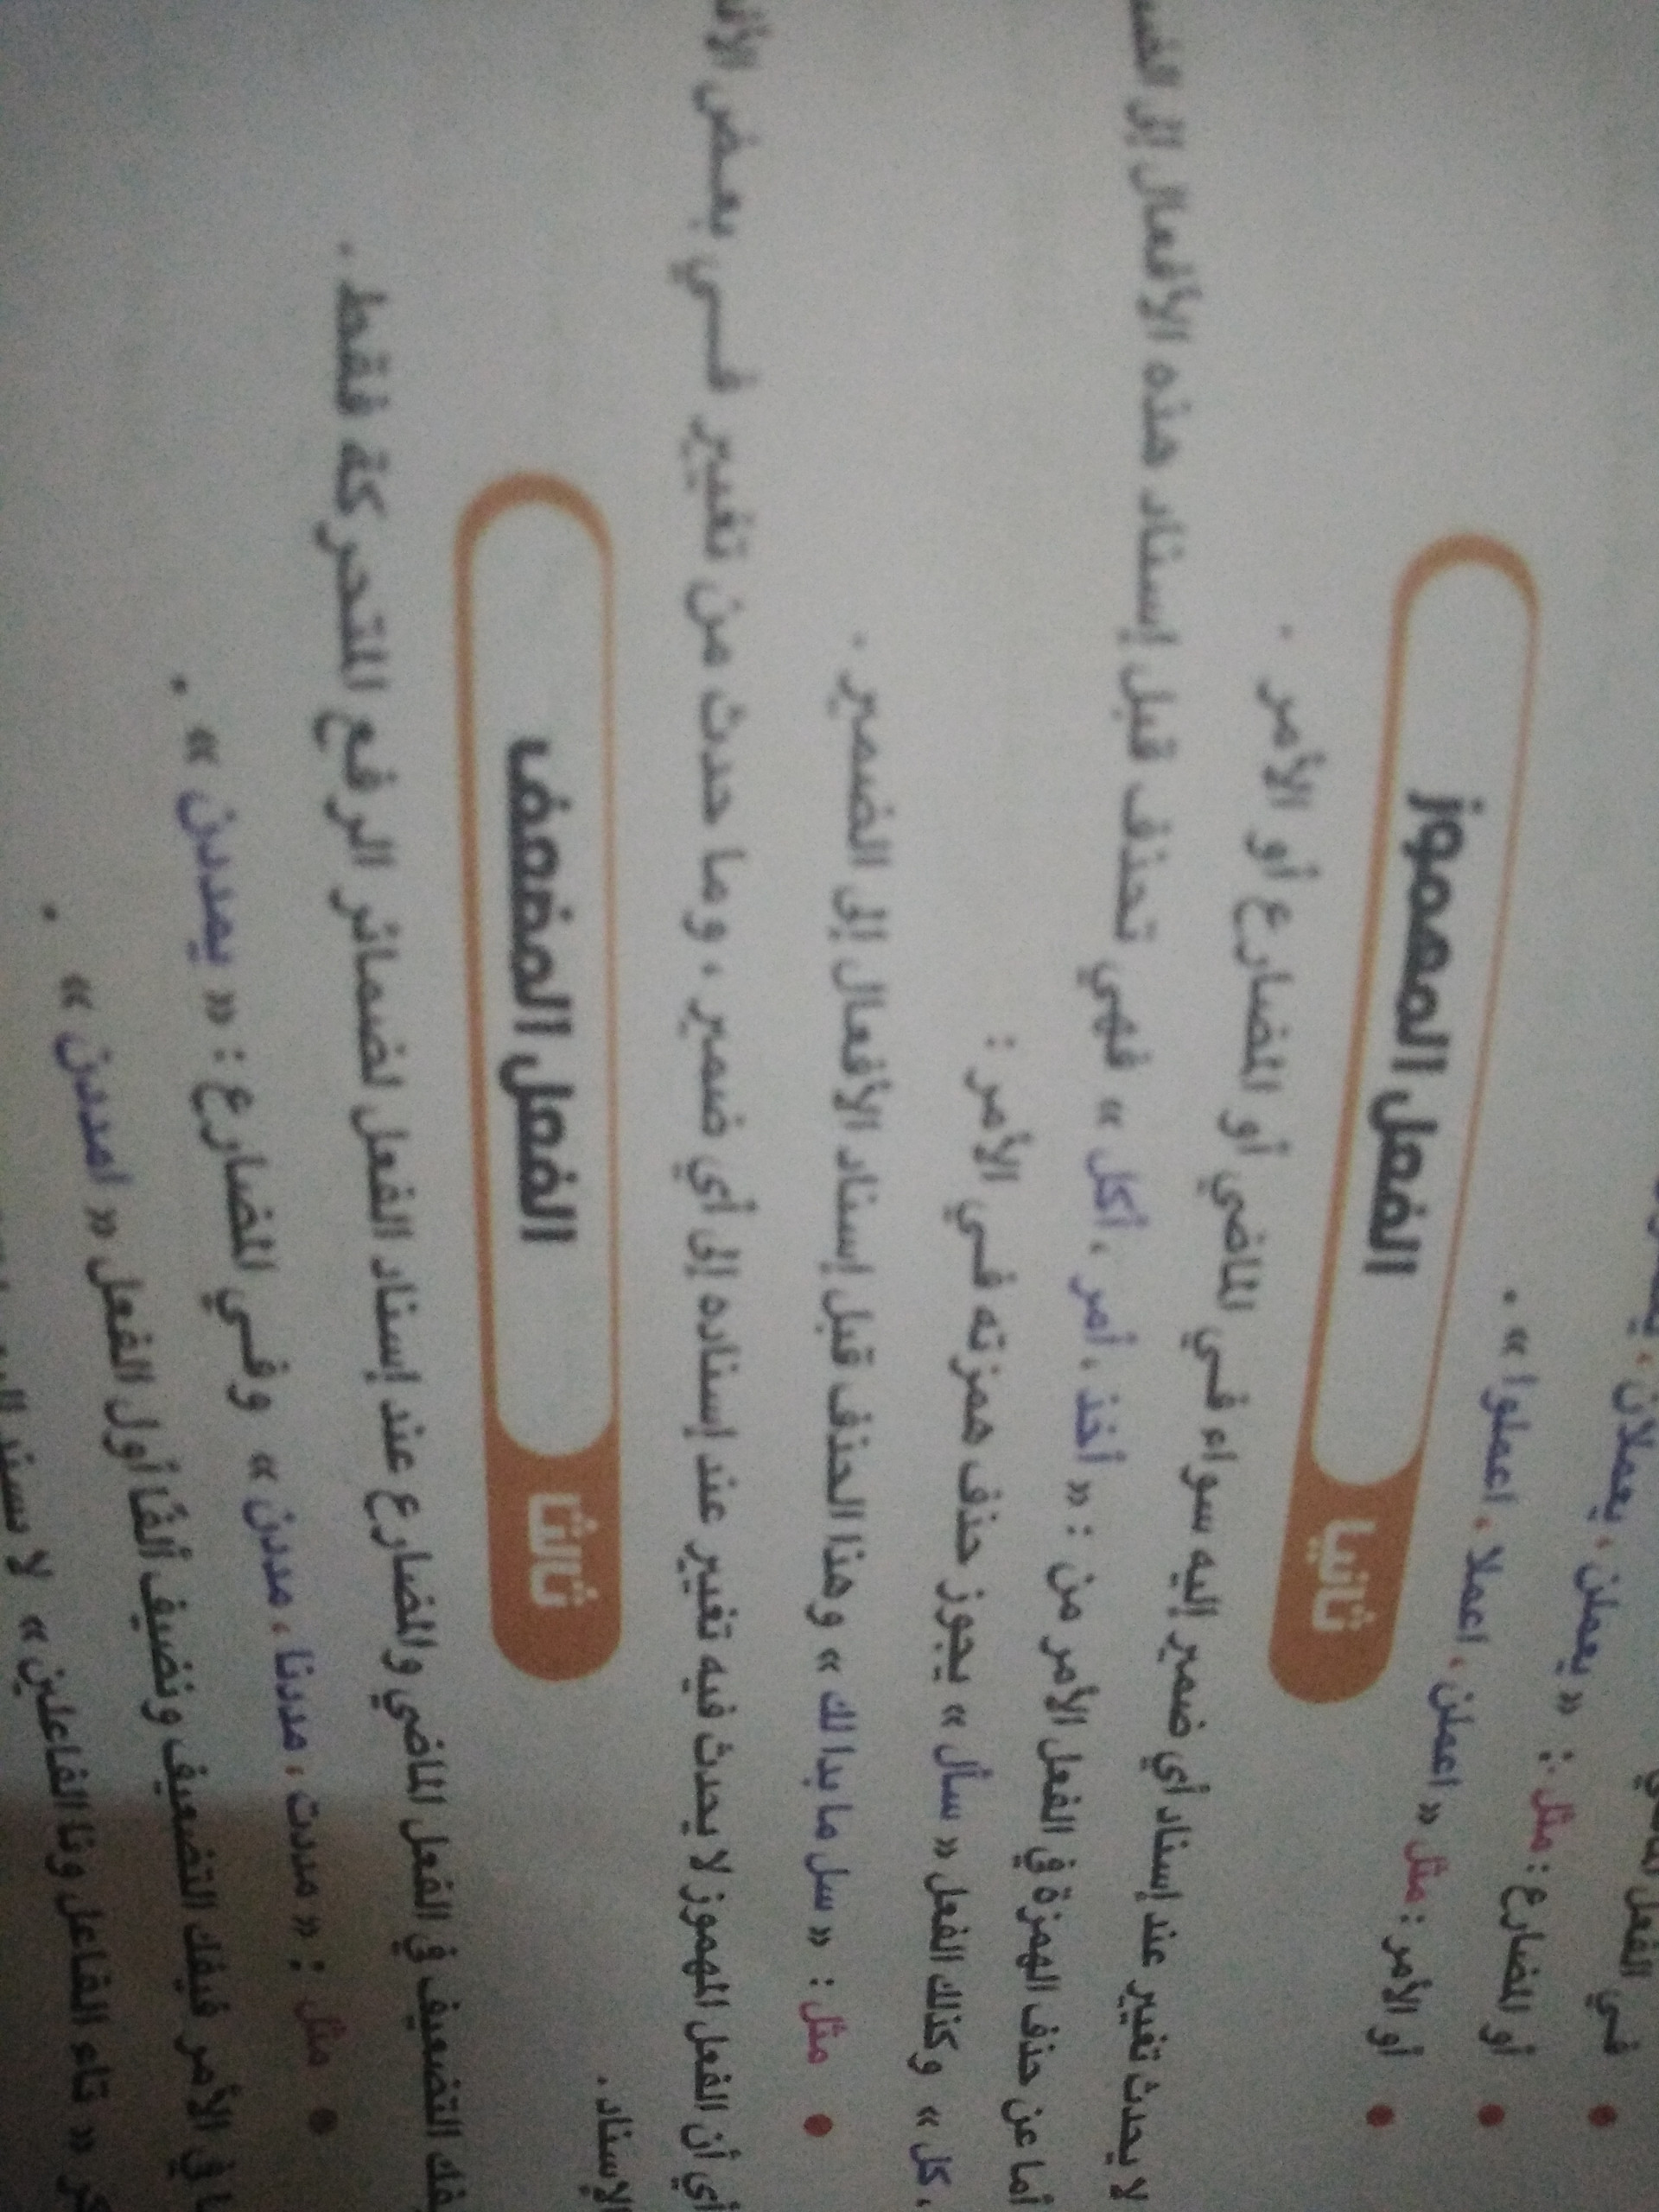 في الفعل
يعملن ، يعملان ،
أو المضارع : مثل : « يعملن ، يعملان ،
أو الأمر : مثل « اعملن ، اعملا ، اعملوا » .
ثانيا
الفعل المهموز
لا يحدث تغيير عند إسناد أي ضمير إليه سواء في الماضي أو المضارع أو الأمر .
أما عن حذف الهمزة في الفعل الأمر من : « أخذ ، أمر ، أكل » فهي تحذف قبل إسناد هذه الأفعال إلى
، كل » وكذلك الفعل « سأل » يجوز حذف همزته في الأمر :
مثل : « سل ما بدا لك » وهذا الحذف قبل إسناد الأفعال إلى الضمير .
أي أن الفعل المهموز لا يحدث فيه تغيير عند إسناده إلى أي ضمير ، وما حدث من تغيير في بعض
الإسناد .
ثالثا
الفعل المضعف
يفك التضعيف في الفعل الماضي والمضارع عند إسناد الفعل لضمائر الرفع المتحركة فقط .
مثل : « مددت ، مددنا ، مددن » وفي المضارع : « يمددن » .
في الأمر فيفك التضعيف ونضيف ألفًا أول الفعل « امددن » .
« تاء الفاعل ونا الفاعلين » لا